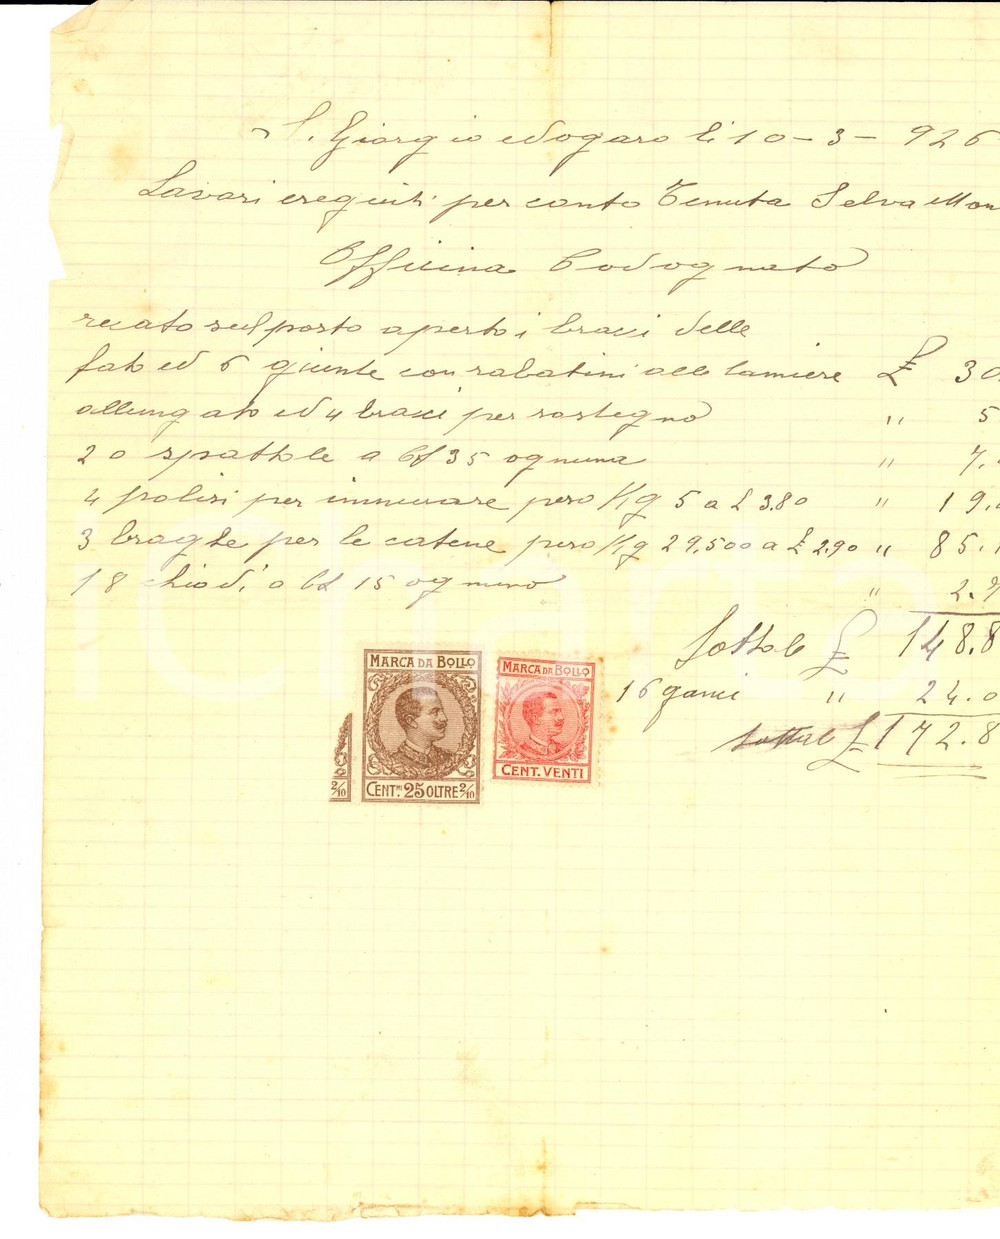 S. Giorgio Nogaro li 10-3-926
Lavori eseguiti per conto Tenuta Selva Mon
Officina Codognato
recato sul posto aperto i bracci delle
fato ed 6 giunte con rabatini alle lamiere £ 30
allungato ed 4 bracci per sostegno " 5
20 spattole a Ct 35 ognuna " 7.
4 polisi per immurare peso Kg 5 a £ 3.80 " 19.
3 braghe per le catene peso Kg 29,500 a £ 2.90 " 85.
18 chiodi a Ct 15 ognuno " 2.7
Tottale £ 148.8
16 ganci " 24.0
tottale £ 172.8
MARCA DA BOLLO
CENT.MI 25 OLTRE 2/10
2/10
MARCA DA BOLLO
CENT. VENTI